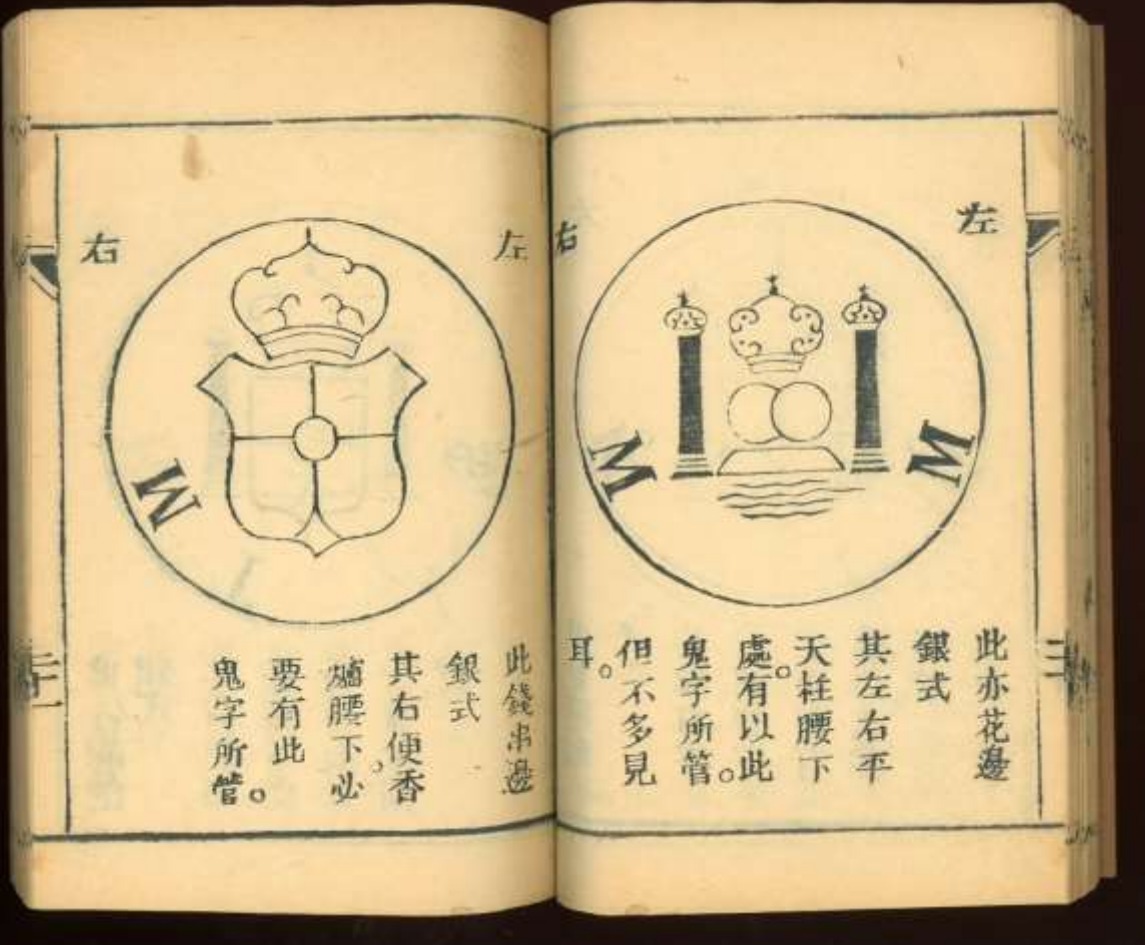 左
右
M
M
此亦花邊
銀式
其左右平
天柱腰下
處。有以此
鬼字所管。
但不多見
耳。
左
右
M
此錢串邊
銀式
其右便香
爐腰下必
要有此
鬼字所管。